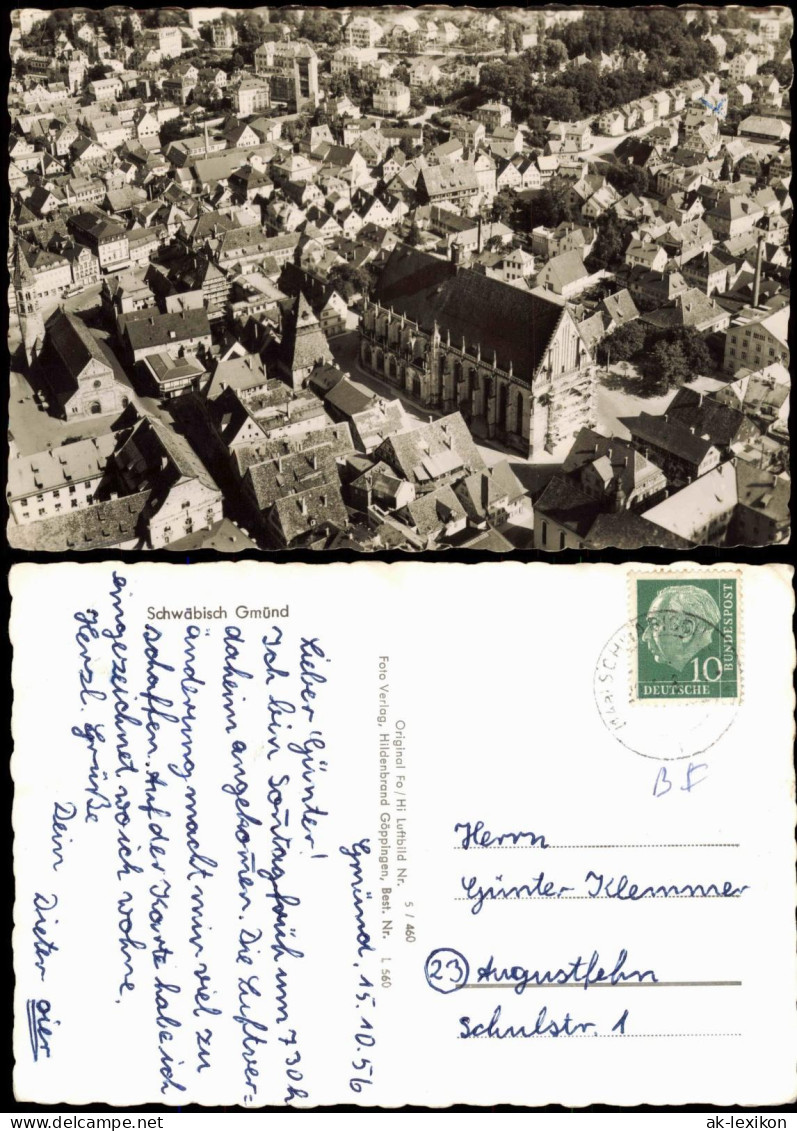 Schwäbisch Gmünd
Gmünd, 15.10.56
Lieber Günter!
Ich bin Sonntag früh um 730h
daheim angekommen. Die Luftver=
änderung macht mir viel zu
schaffen. Auf der Karte habe ich
eingezeichnet wo ich wohne.
Herzl. Grüße
Dein Dieter
Original Fo/Hi Luftbild Nr. 5/460
Foto Verlag, Hildenbrand Göppingen, Best. Nr. L 560
10
DEUTSCHE
BUNDESPOST
Herrn
Günter Klemmer
23 Augustfehn
Schulstr. 1
ak-lexikon